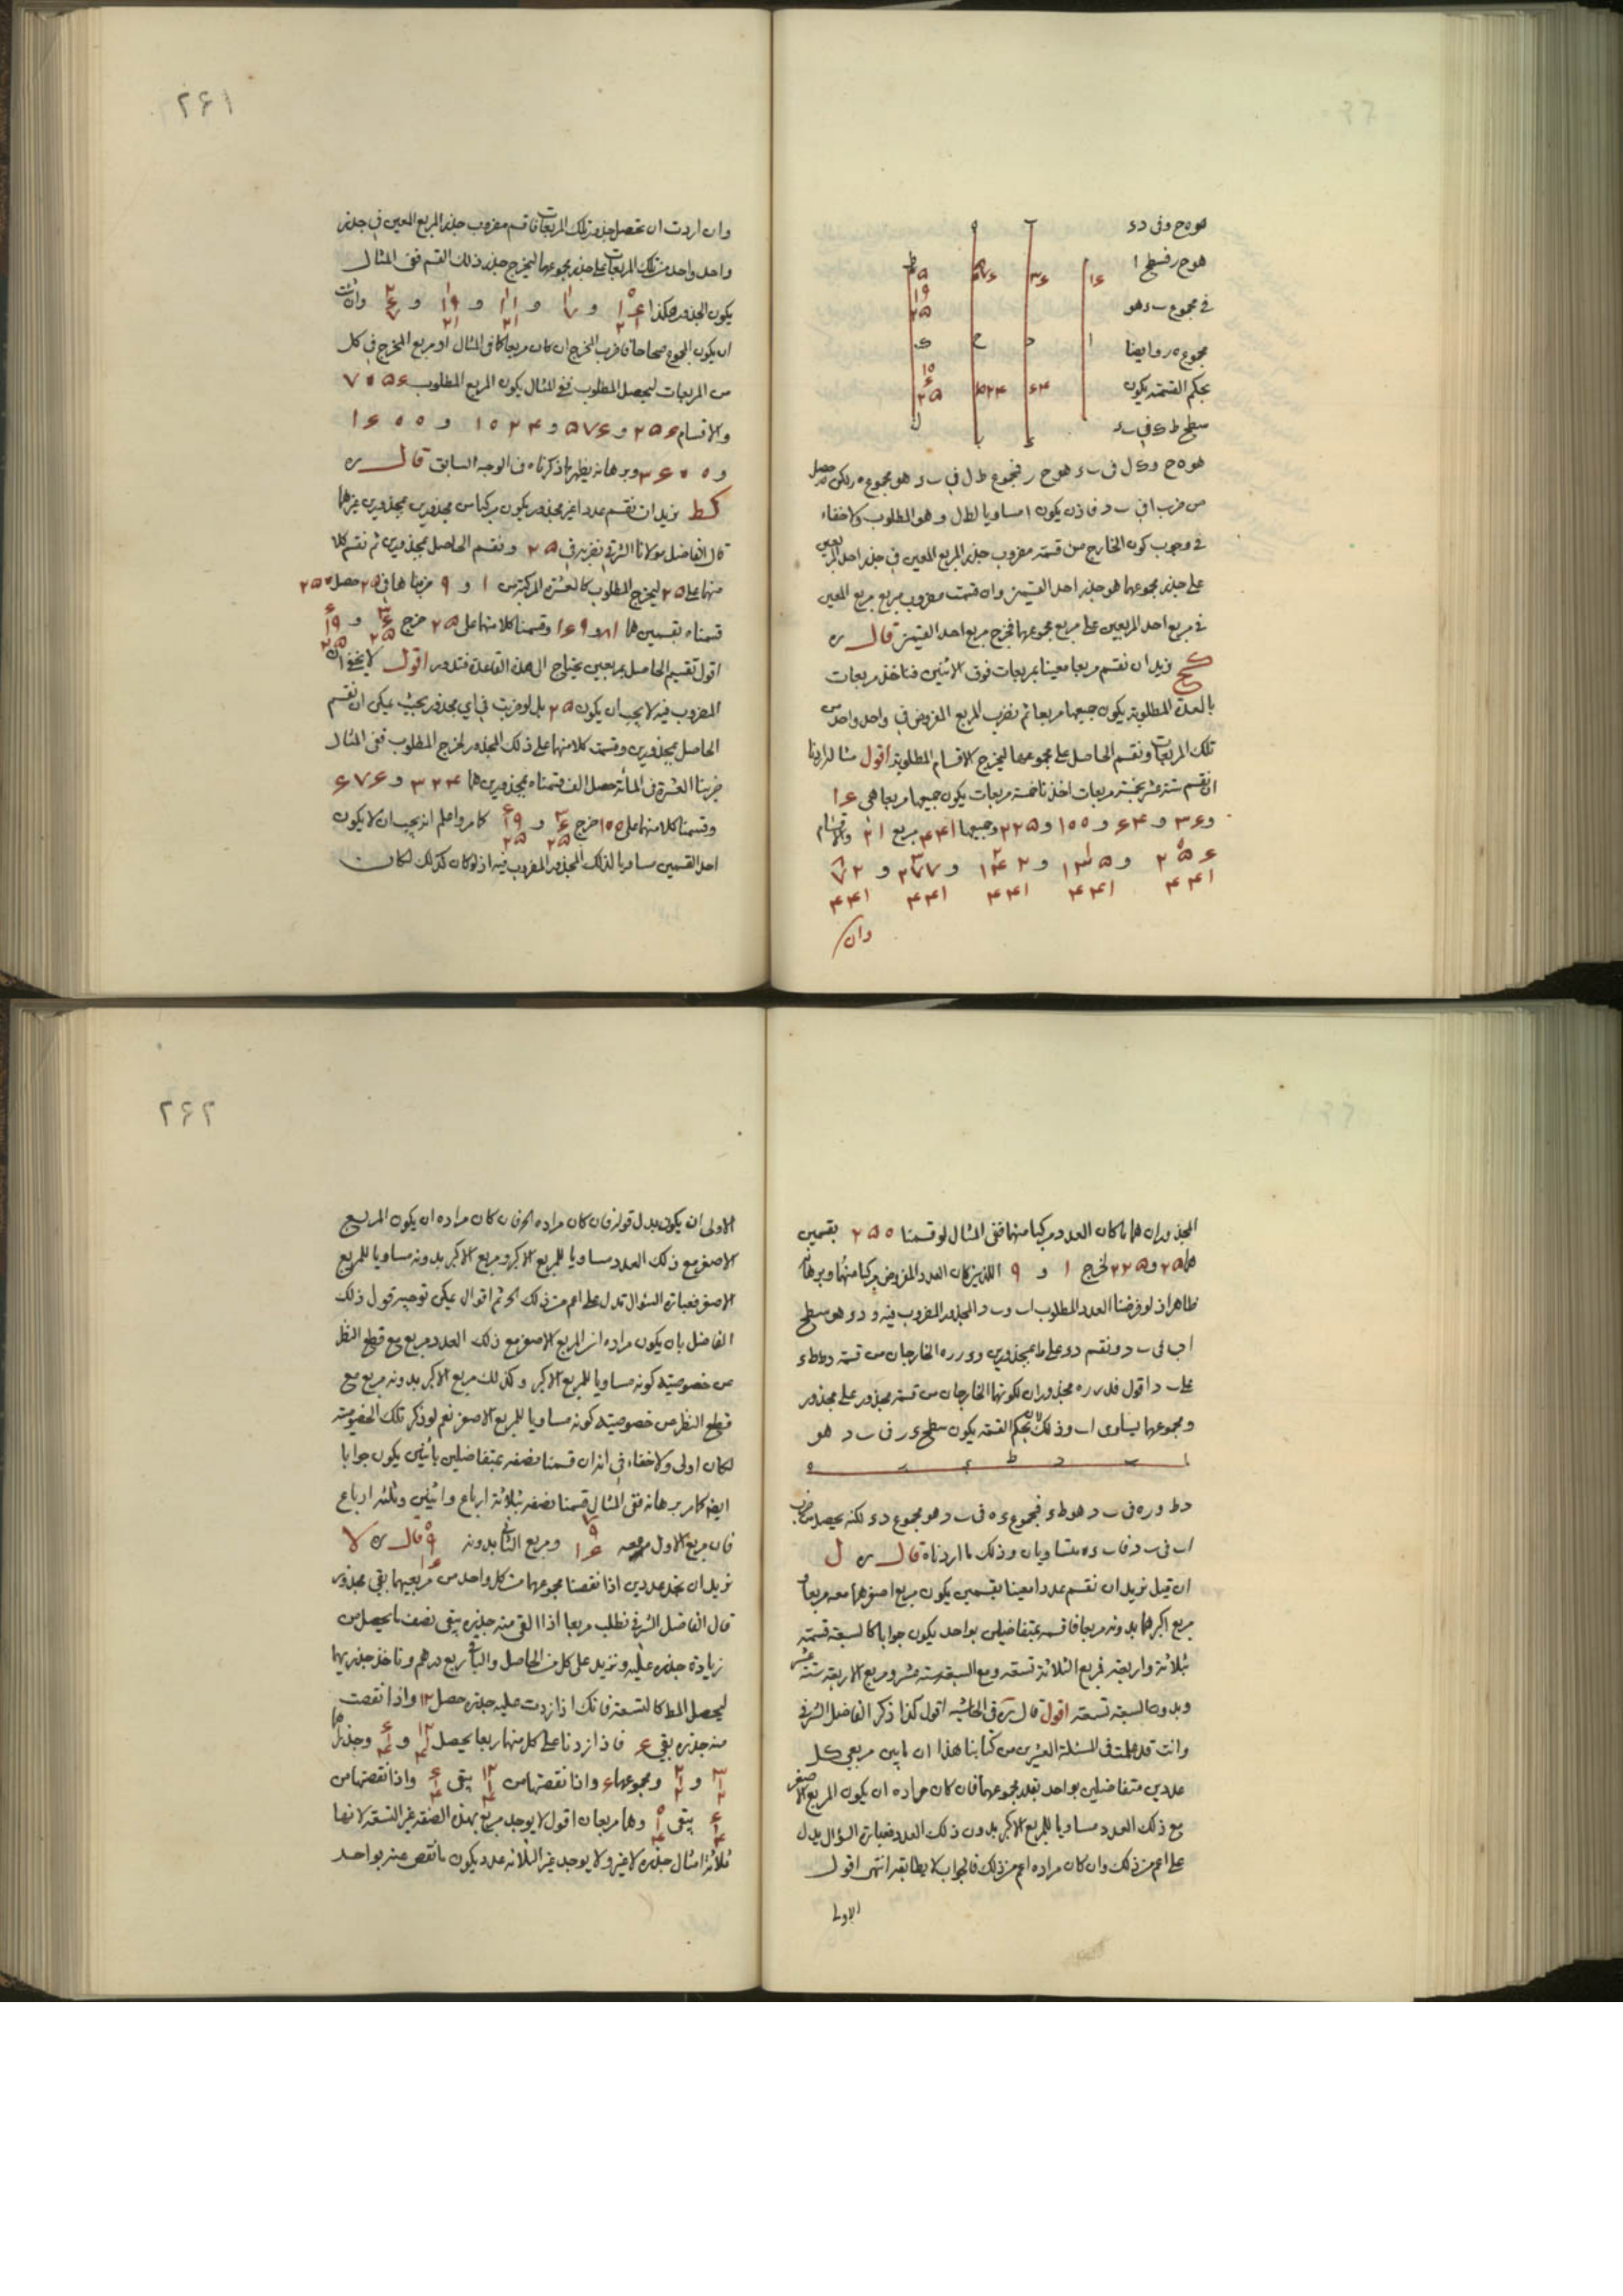 هو ه ح وفى د ء
هو ح ر فسطح ا
فى مجموع ب ء هو
مجموع ه ر وايضا
بحكم القسمة يكون
سطح ط ك فى ب د
هو ه ح و ك ل فى ب ء هو ح ر فمجموع ط ل فى ب ء هو مجموع ه ر لكن حصل
من ضرب ا فى ب د فاذن يكون ا مساويا لط ل وهو المطلوب ولا خفاء
فى وجوب كون الخارج من قسمة مضروب جذر المربع المعين فى جذر احد المربعين
على جذر مجموعهما هو جذر احد القسمين وان قسمت مضروب مربع مربع المعين
فى مربع احد المربعين على مربع مجموعهما فخرج مربع احد القسمين قال ره
كح نريد ان نقسم مربعا معينا بمربعات فوق الاثنين فناخذ مربعات
بالعدة المطلوبة يكون جميعها مربعا ثم نضرب المربع المفروض فى واحد واحد من
تلك المربعات ونقسم الحاصل على مجموعها ليخرج الاقسام المطلوبة اقول مثلا اردنا
ان نقسم ستة عشر بخمسة مربعات اخذنا خمسة مربعات يكون جميعها مربعا هى ۱۶
و ۳۶ و ۶۴ و ۱۰۰ و ۲۲۵ وجميعها ۴۴۱ مربع ۲۱ والاقسام
۴۴۱ ۴۴۱ ۴۴۱ ۴۴۱ ۴۴۱
وان
۲۶۱
وان اردت ان تحصل جذور تلك المربعات فاقسم مضروب جذر المربع المعين فى جذر
واحد واحد من تلك المربعات على جذر مجموعها ليخرج جذر ذلك القسم ففى المثال
يكون الجذور هكذا وان شئت
ان يكون الجموع صحاحا فاضرب المخرج ان كان مربعا كما فى المثال او مربع المخرج فى كل
من المربعات ليحصل المطلوب ففى المثال يكون المربع المطلوب ۷۰۵۶
والاقسام ۲۵۶ و ۵۷۶ و ۱۰۲۴ و ۱۶۰۰
و ۳۶۰۰ وبرهانه يظهر بما ذكرناه فى الوجه السابق قال ره
كط نريد ان نقسم عددا غير مجذور يكون مركبا من مجذورين بمجذورين غيرهما
قال الفاضل مولانا الشرفى نضربه فى ۲۵ ونقسم الحاصل بمجذورين ثم نقسم كلا
منهما على ۲۵ ليخرج المطلوب كالعشرة المركبة من ۱ و ۹ ضربناها فى ۲۵ حصل ۲۵۰
قسمناه بقسمين هما ۸۱ و ۱۶۹ وقسمنا كلا منهما على ۲۵ خرج
اقول تقسيم الحاصل بمربعين يحتاج الى هذه القاعدة فتدور اقول لا يخفى ان
المضروب فيه لا يجب ان يكون ۲۵ بل لو ضربت فى اى مجذور بحيث يمكن ان نقسم
الحاصل بمجذورين وقسمت كلا منهما على ذلك المجذور لخرج المطلوب ففى المثال
ضربنا العشرة فى المائة حصل الف قسمناه بمجذورين هما ۳۲۴ و ۶۷۶
وقسمنا كلا منهما على ۱۰۰ خرج كما مر واعلم انه يجب ان لا يكون
احد القسمين مساويا لذلك المجذور المضروب فيه اذ لو كان كذلك لكان
المجذوران هما ما كان العدد مركبا منهما ففى المثال لو قسمنا ۲۵۰ بقسمين
هما ۲۵ و ۲۲۵ لخرج ۱ و ۹ اللذين كان العدد المفروض مركبا منهما وبرهانه
ظاهر اذ لو فرضنا العدد المطلوب ا ب و ب د المجذور المضروب فيه و د و هو سطح
ا ب فى ب د ونقسم د و على ط بمجذورين و ء ر ر ه الخارجان من قسمة د ط ط ء
على ب د اقول فلء ر ر ه مجذوران لكونهما الخارجان من قسمة مجذور على مجذور
ومجموعهما يساوى ا ب وذلك لان بحكم القسمة يكون سطح ء ر فى ب د هو
د ط و ر ه فى ب د هو ط ء فمجموع ء ه فى ب د هو مجموع د ء لكنه يحصل من ضرب
ا ب فى ب د فا ب ء ه متساويان وذلك ما اردناه قال ره ل
ان قيل نريد ان نقسم عددا معينا بقسمين يكون مربع اصغرهما معه مربعا و
مربع اكبرهما بدونه مربعا فاقسمه بمتفاضلين بواحد يكون جوابا كالسبعة قسمته
بثلاثة واربعة فمربع الثلاثة تسعة ومع السبعة ستة عشر ومربع الاربعة ستة عشر
وبدون السبعة تسعة اقول قال ره فى الحاشية اقول كذا ذكر الفاضل الشرفى
وانت قد علمت فى المسئلة العشرين من كتابنا هذا ان ما بين مربعى كل
عددين متفاضلين بواحد بقدر مجموعهما فان كان مراده ان يكون المربع الاصغر
مع ذلك العدد مساويا للمربع الاكبر بدون ذلك العدد فعبارة السؤال يدل
على اعم من ذلك وان كان مراده اعم من ذلك فالجواب لا يطابقه انتهى اقول
الاولى
۲۶۲
الاولى ان يكون بدل قوله فان كان مراده الخ فان كان مراده ان يكون المربع
الاصغر مع ذلك العدد مساويا للمربع الاكبر ومربع الاكبر بدونه مساويا للمربع
الاصغر فعبارة السؤال تدل على اعم من ذلك الخ ثم اقول يمكن توجيه قول ذلك
الفاضل بان يكون مراده ان المربع الاصغر مع ذلك العدد مربع مع قطع النظر
عن خصوصية كونه مساويا للمربع الاكبر وكذلك مربع الاكبر بدونه مربع مع
قطع النظر عن خصوصية كونه مساويا للمربع الاصغر نعم لو ذكر تلك الخصوصية
لكان اولى ولا خفاء فى انه ان قسمنا نصفه بمتفاضلين باثنين يكون جوابا
ايضا كما مر برهانه ففى المثال قسمنا نصفه بثلاثة ارباع واثنين وثلثة ارباع
فان مربع الاول معه ومربع الثانى بدونه قال ره لا
نريد ان نجد عددين اذا نقصنا مجموعهما من كل واحد من مربعيهما بقى مجذور
قال الفاضل الشرفى نطلب مربعا اذا القى منه جذره يبقى نصف ما يحصل من
زيادة جذره عليه ونزيد على كل من الحاصل والباقى ربع درهم وناخذ جذريهما
ليحصل المط كالتسعة فانك اذا زدت عليه جذره حصل ۱۲ واذا نقصت
منه جذره بقى ۶ فاذا زدنا على كل منهما ربعا يحصل وجذراهما
ومجموعها ۶ واذا نقصتها من يبقى واذا نقصتها من
يبقى وهما مربعان اقول لا يوجد مربع بهذه الصفة غير التسعة لانها
ثلاثة امثال جذره لا غير ولا يوجد غير الثلاثة عدد يكون ما نقص عنه بواحد